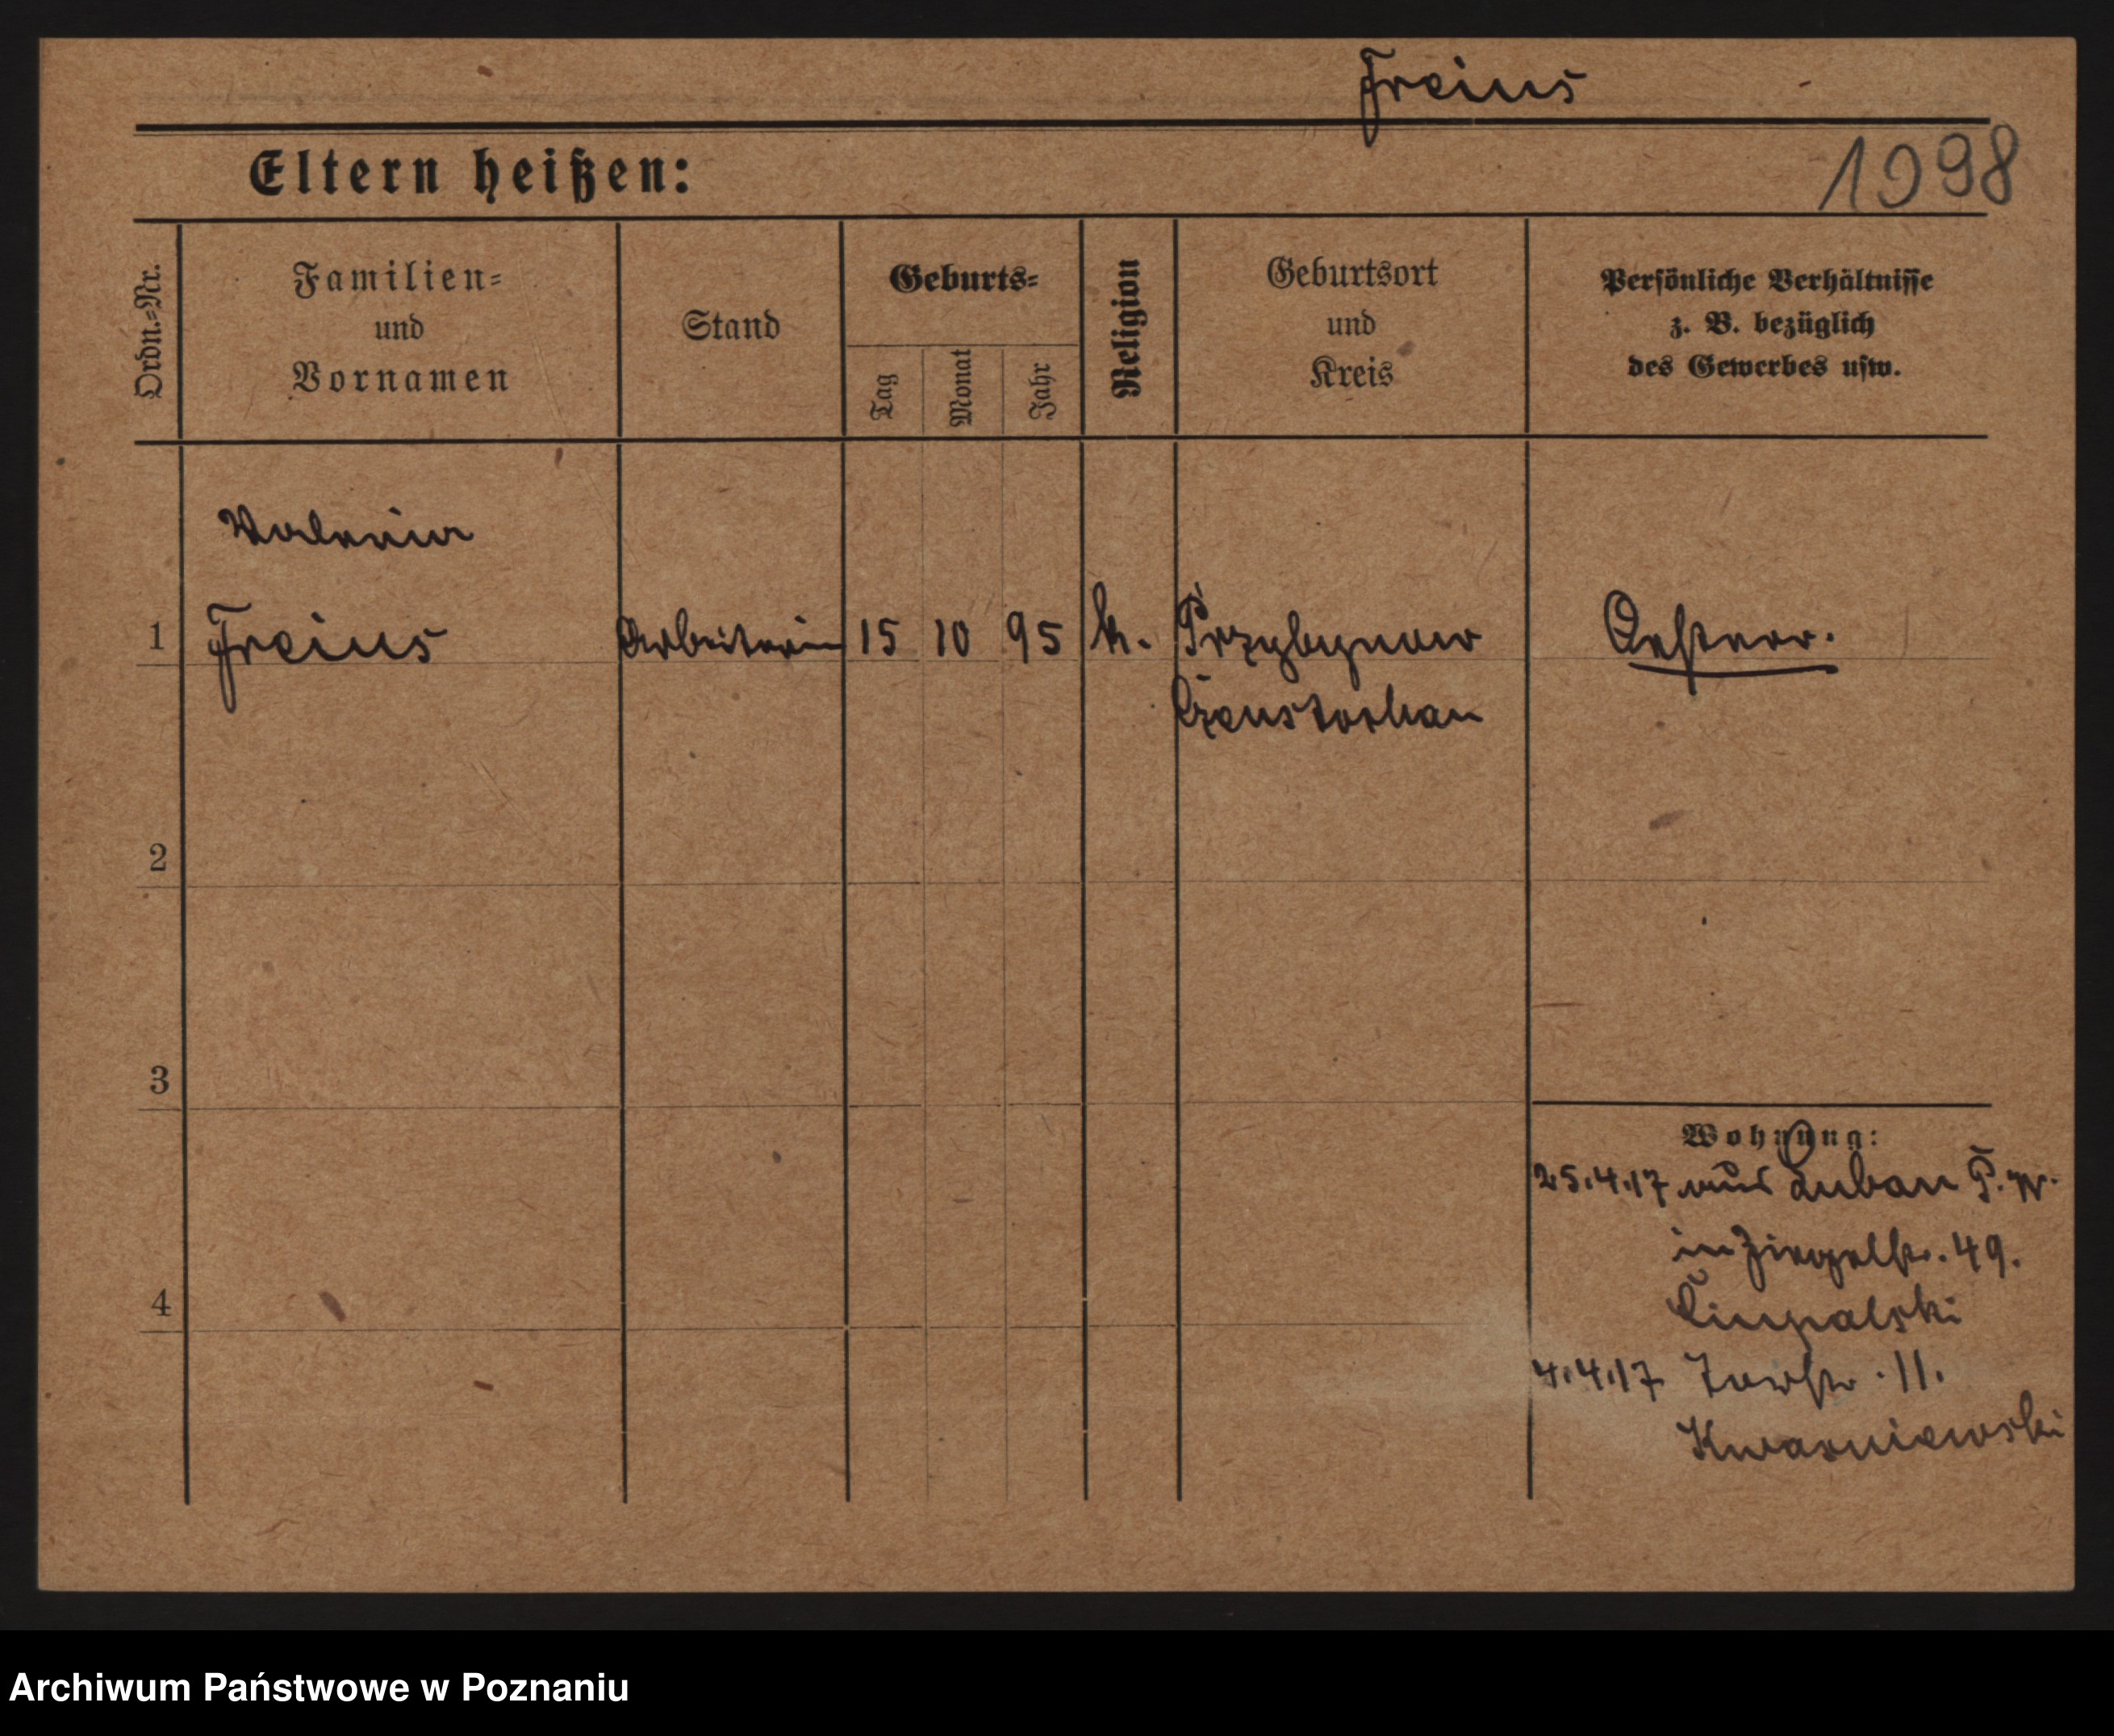 Freius
Eltern heißen:
1998
Ordn.=Nr.
Familien=
und
Vornamen
Stand
Geburts=
Tag
Monat
Jahr
Religion
Geburtsort
und
Kreis
Persönliche Verhältnisse
z. B. bezüglich
des Gewerbes usw.
Valeria
1 Freius Arbeiterin 15 10 95 k. Przybynow Oesterr.
Czenstochau
2
3
4
Wohnung:
25.4.17 aus Luban P. W.
in Ziegelstr. 49.
4.4.17 Torstr. 11.
Kwasniewski
Archiwum Państwowe w Poznaniu